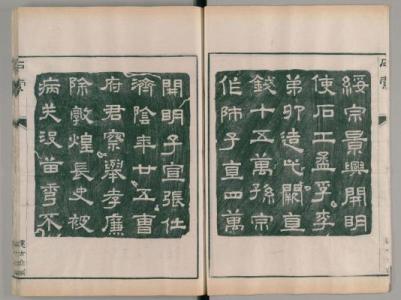 綏宗景興開明
使石工孟孚李
弟卯造此闕直
錢十五萬孫宗
作師子直四萬
開明子宣張仕
濟陰年廿五曹
府君察舉孝廉
除敦煌長史被
病夭沒苗秀不
石索